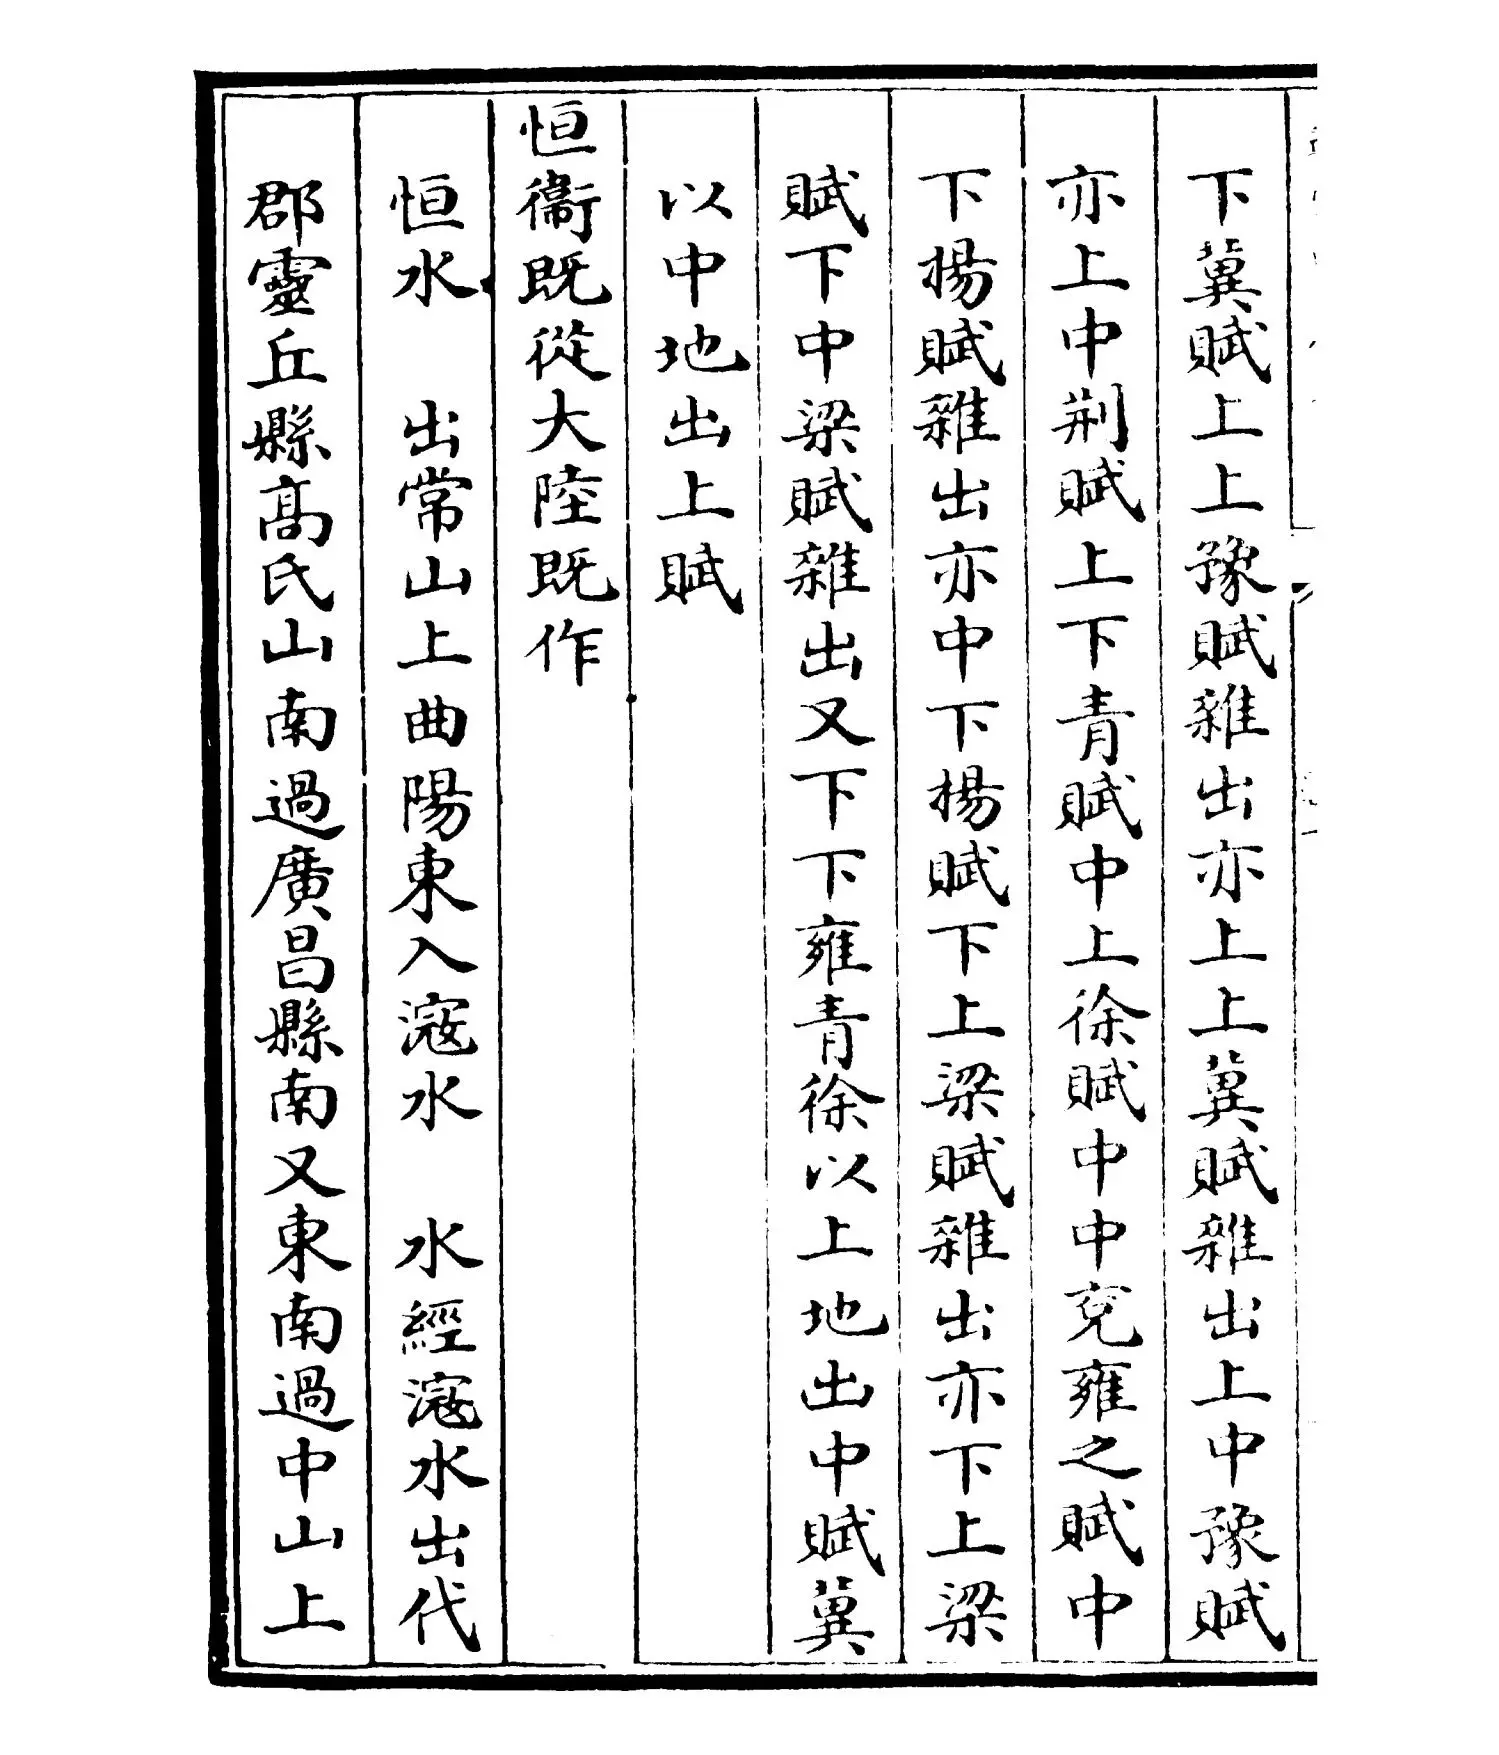 下冀賦上上豫賦雜出亦上上冀賦雜出上中豫賦
亦上中荆賦上下青賦中上徐賦中中兗雍之賦中
下揚賦雜出亦中下揚賦下上梁賦雜出亦下上梁
賦下中梁賦雜出又下下雍青徐以上地出中賦冀
以中地出上賦
恒衞既從大陸既作
恒水 出常山上曲陽東入滱水 水經滱水出代
郡靈丘縣高氏山南過廣昌縣南又東南過中山上